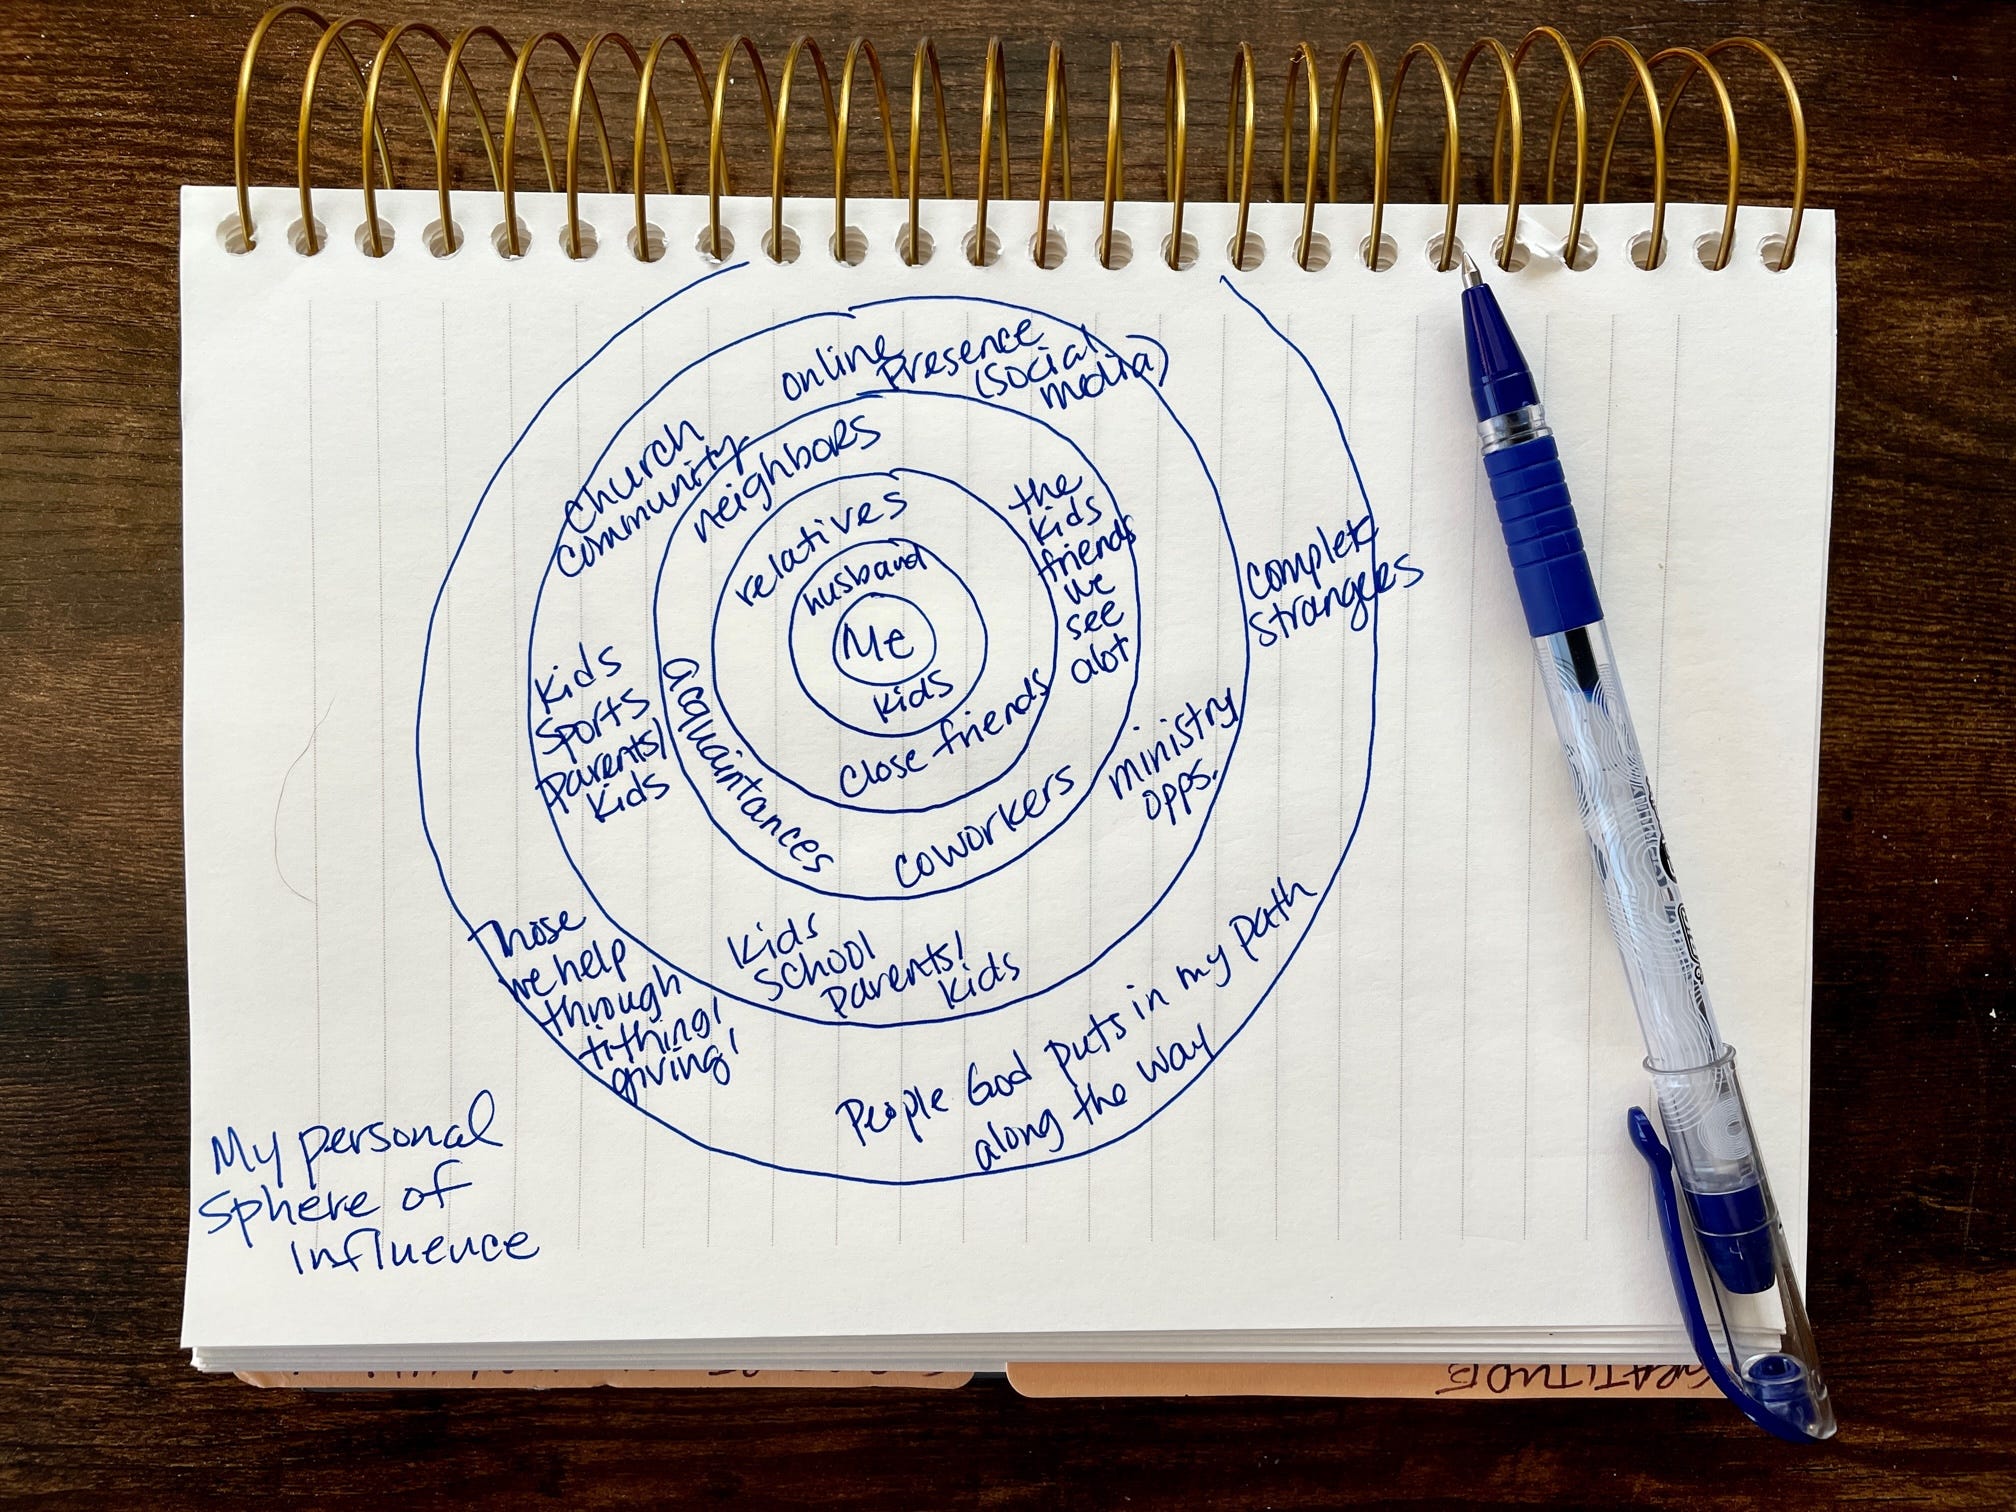 online Presence
(social
media)
church
community
neighbors
relatives
husband
Me
kids
close friends
the
kids
friends
we
see
alot
acquaintances
coworkers
kids
sports
parents/
kids
ministry
opps.
kids
school
parents/
kids
complete
strangers
Those
we help
through
tithing/
giving/
People God puts in my path
along the way
My personal
sphere of
influence
GRATITUDE